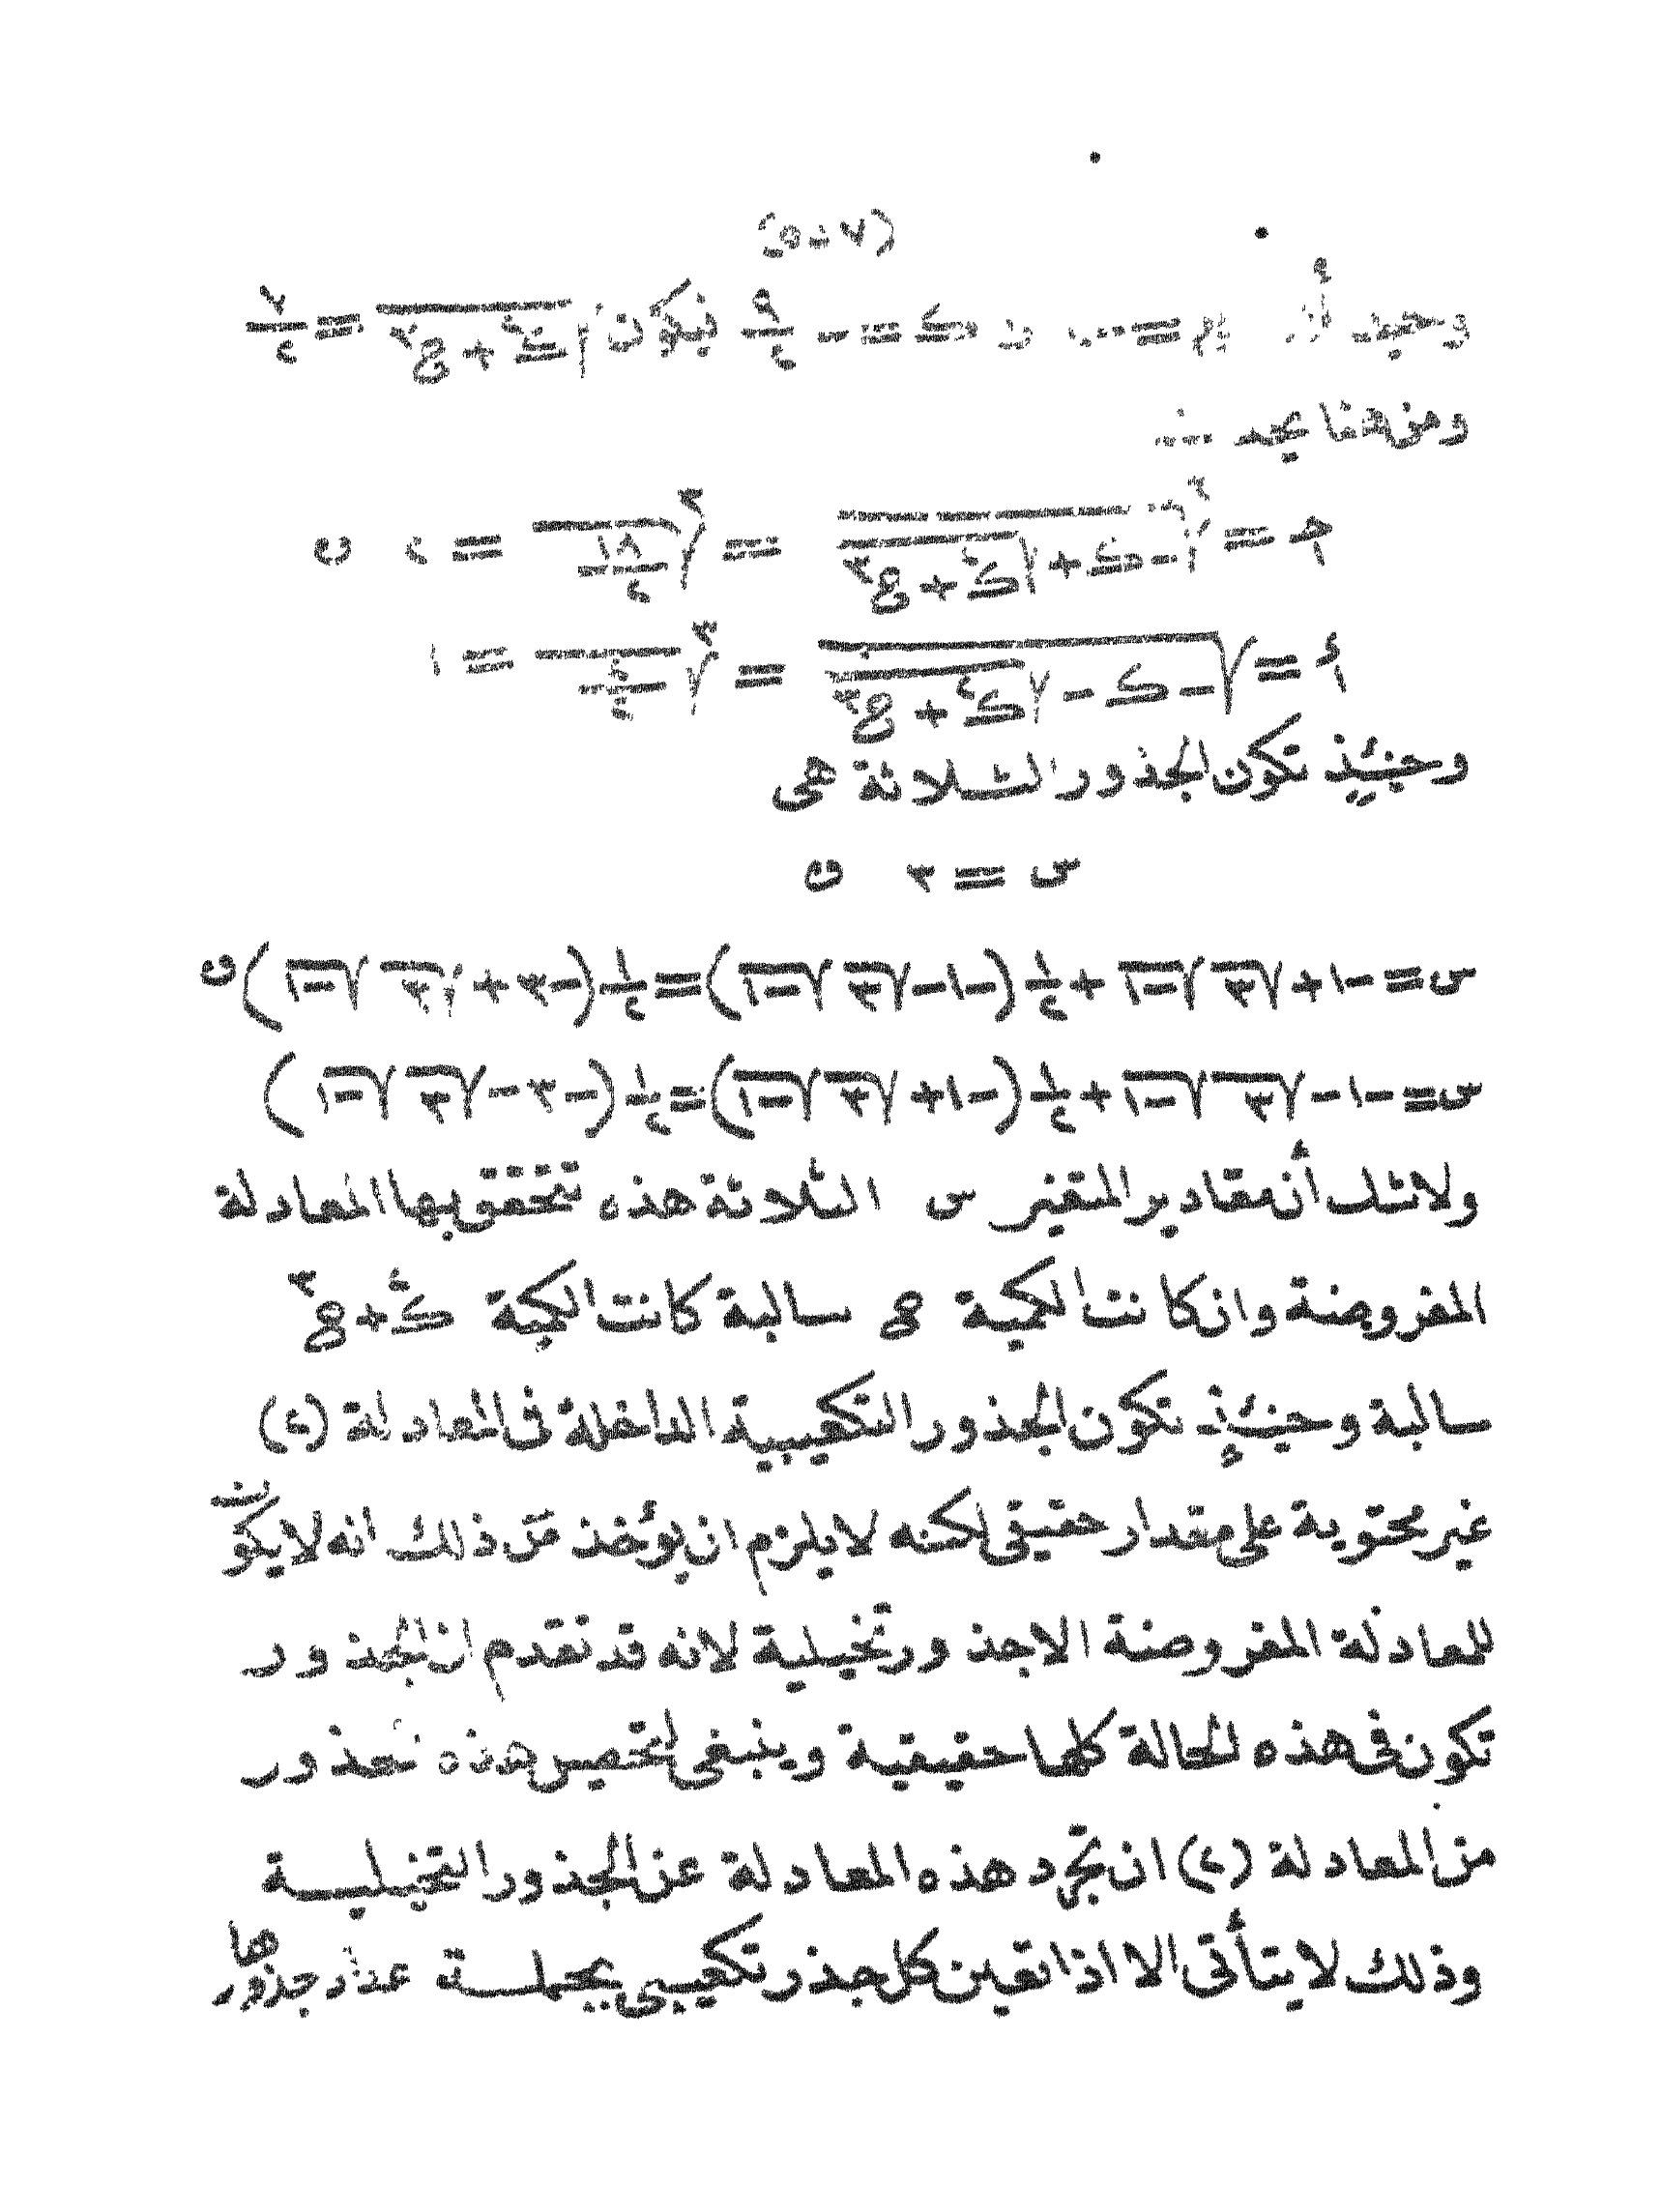 (٥٠٧)
وحيث أن ع = ٠٠٠ و ك = − ٩/٢ فيكون √(ك٢ + ع٣) = ٧/٢
ومن هنا يحد
م = ∛(− ك + √(ك٢ + ع٣)) = ∛(١٨/٢) = ٢ و
أ = √(− ك − √(ك٢ + ع٣)) = ∛(٢/٢) = ١
وحينئذ تكون الجذور الثلاثة هى
س = ٣ و
س = −١ + √٣ √−١ + ١/٢ (−١ − √٣ √−١) = ١/٢ (−٣ + √٣ √−١) و
س = −١ − √٣ √−١ + ١/٢ (−١ + √٣ √−١) = ١/٢ (−٣ − √٣ √−١)
ولاشك أن مقادير المتغير س الثلاثة هذه تتحقق بها المعادلة
المفروضة وان كانت الكمية ع سالبة كانت الكمية ك٢ + ع٣
سالبة وحينئذ تكون الجذور التكعيبية الداخلة فى المعادلة (٤)
غير محتوية على مقدار حقيقى لكنه لا يلزم ان يؤخذ من ذلك انه لا يكون
للمعادلة المفروضة الا جذور تخيلية لانه قد تقدم ان الجذور
تكون فى هذه الحالة كلها حقيقية وينبغى لتحصير هذه الجذور
من المعادلة (٢) ان تجرد هذه المعادلة عن الجذور التخيلية
وذلك لا يتأتى الا اذا تعين كل جذر تكعيبى بجملة عدد جذورها